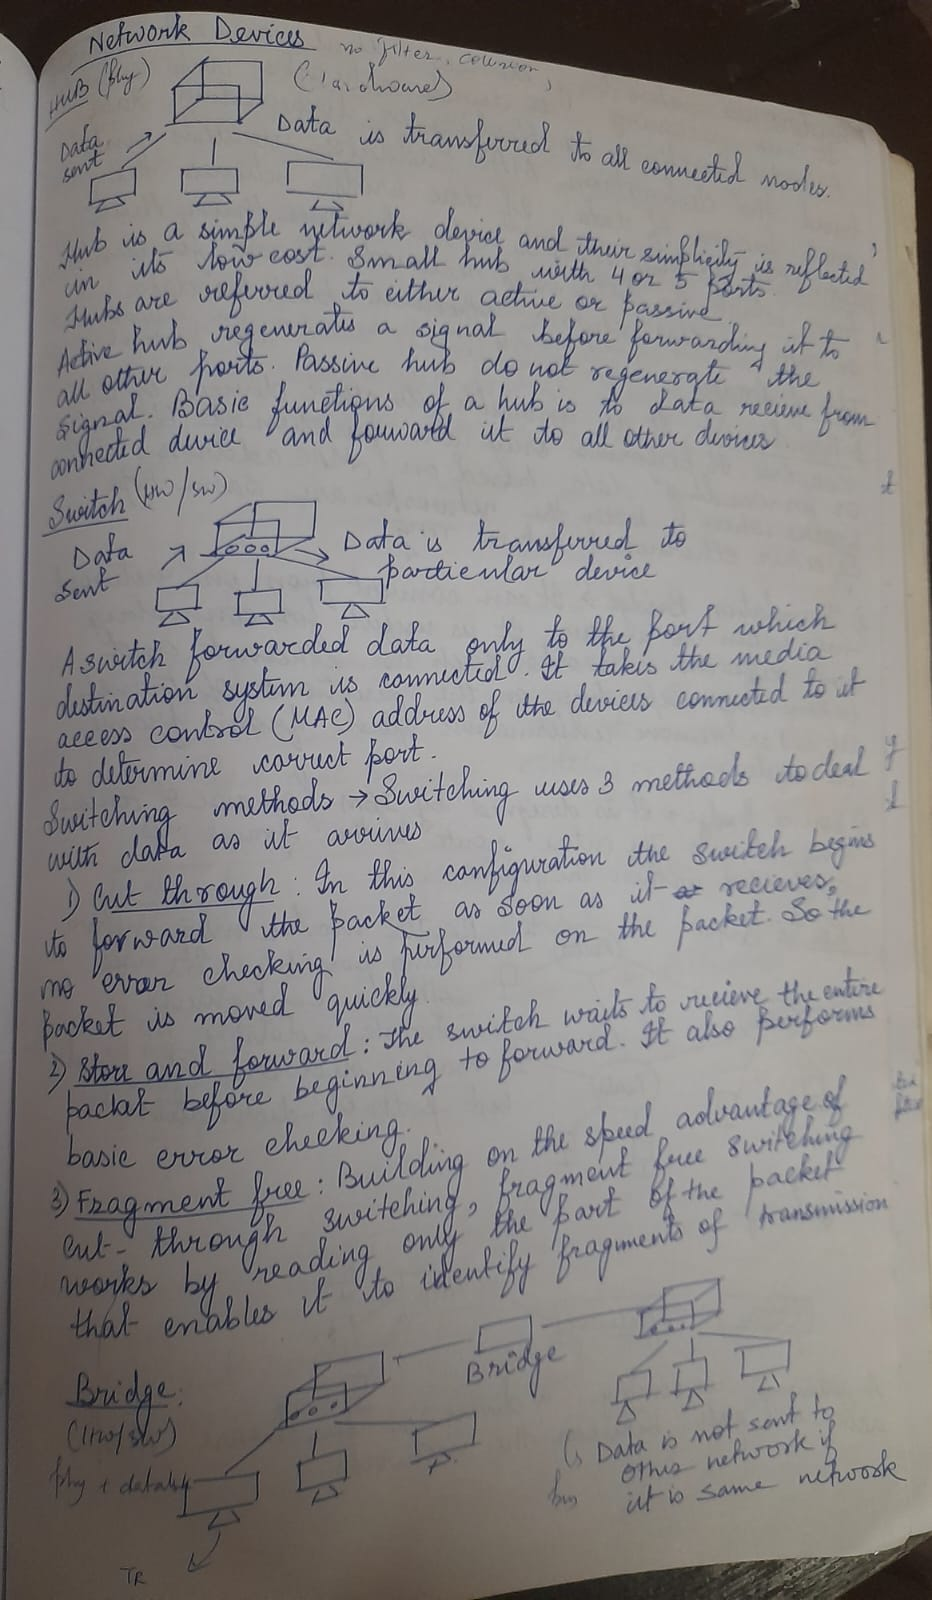 Network Devices
no filter, collision,
HUB (phy)
(Hardware)
Data
sent
Data is transferred to all connected nodes.
Hub is a simple network device and their simplicity is reflected
in its low cost. Small hub with 4 or 5 ports.
Hubs are referred to either active or passive.
Active hub regenerates a signal before forwarding it to
all other ports. Passive hub do not regenerate the
signal. Basic functions of a hub is to data recieve from
connected device and forward it to all other devices
Switch (HW/SW)
Data
sent
Data is transferred to
particular device
A switch forwarded data only to the port which
destination system is connected. It takes the media
access control (MAC) address of the devices connected to it
to determine correct port.
Switching methods → Switching uses 3 methods to deal
with data as it arrives
1) Cut through : In this configuration the switch begins
to forward the packet as soon as it recieves,
no error checking is performed on the packet. So the
packet is moved quickly.
2) Store and forward : The switch waits to recieve the entire
packet before beginning to forward. It also performs
basic error checking.
3) Fragment free : Building on the speed advantage of
cut-through switching, fragment free switching
works by reading only the part of the packet
that enables it to identify fragments of transmission
Bridge
Bridge:
(HW/SW)
phy + datalink
Data is not sent to
other network if
it is same network
TR